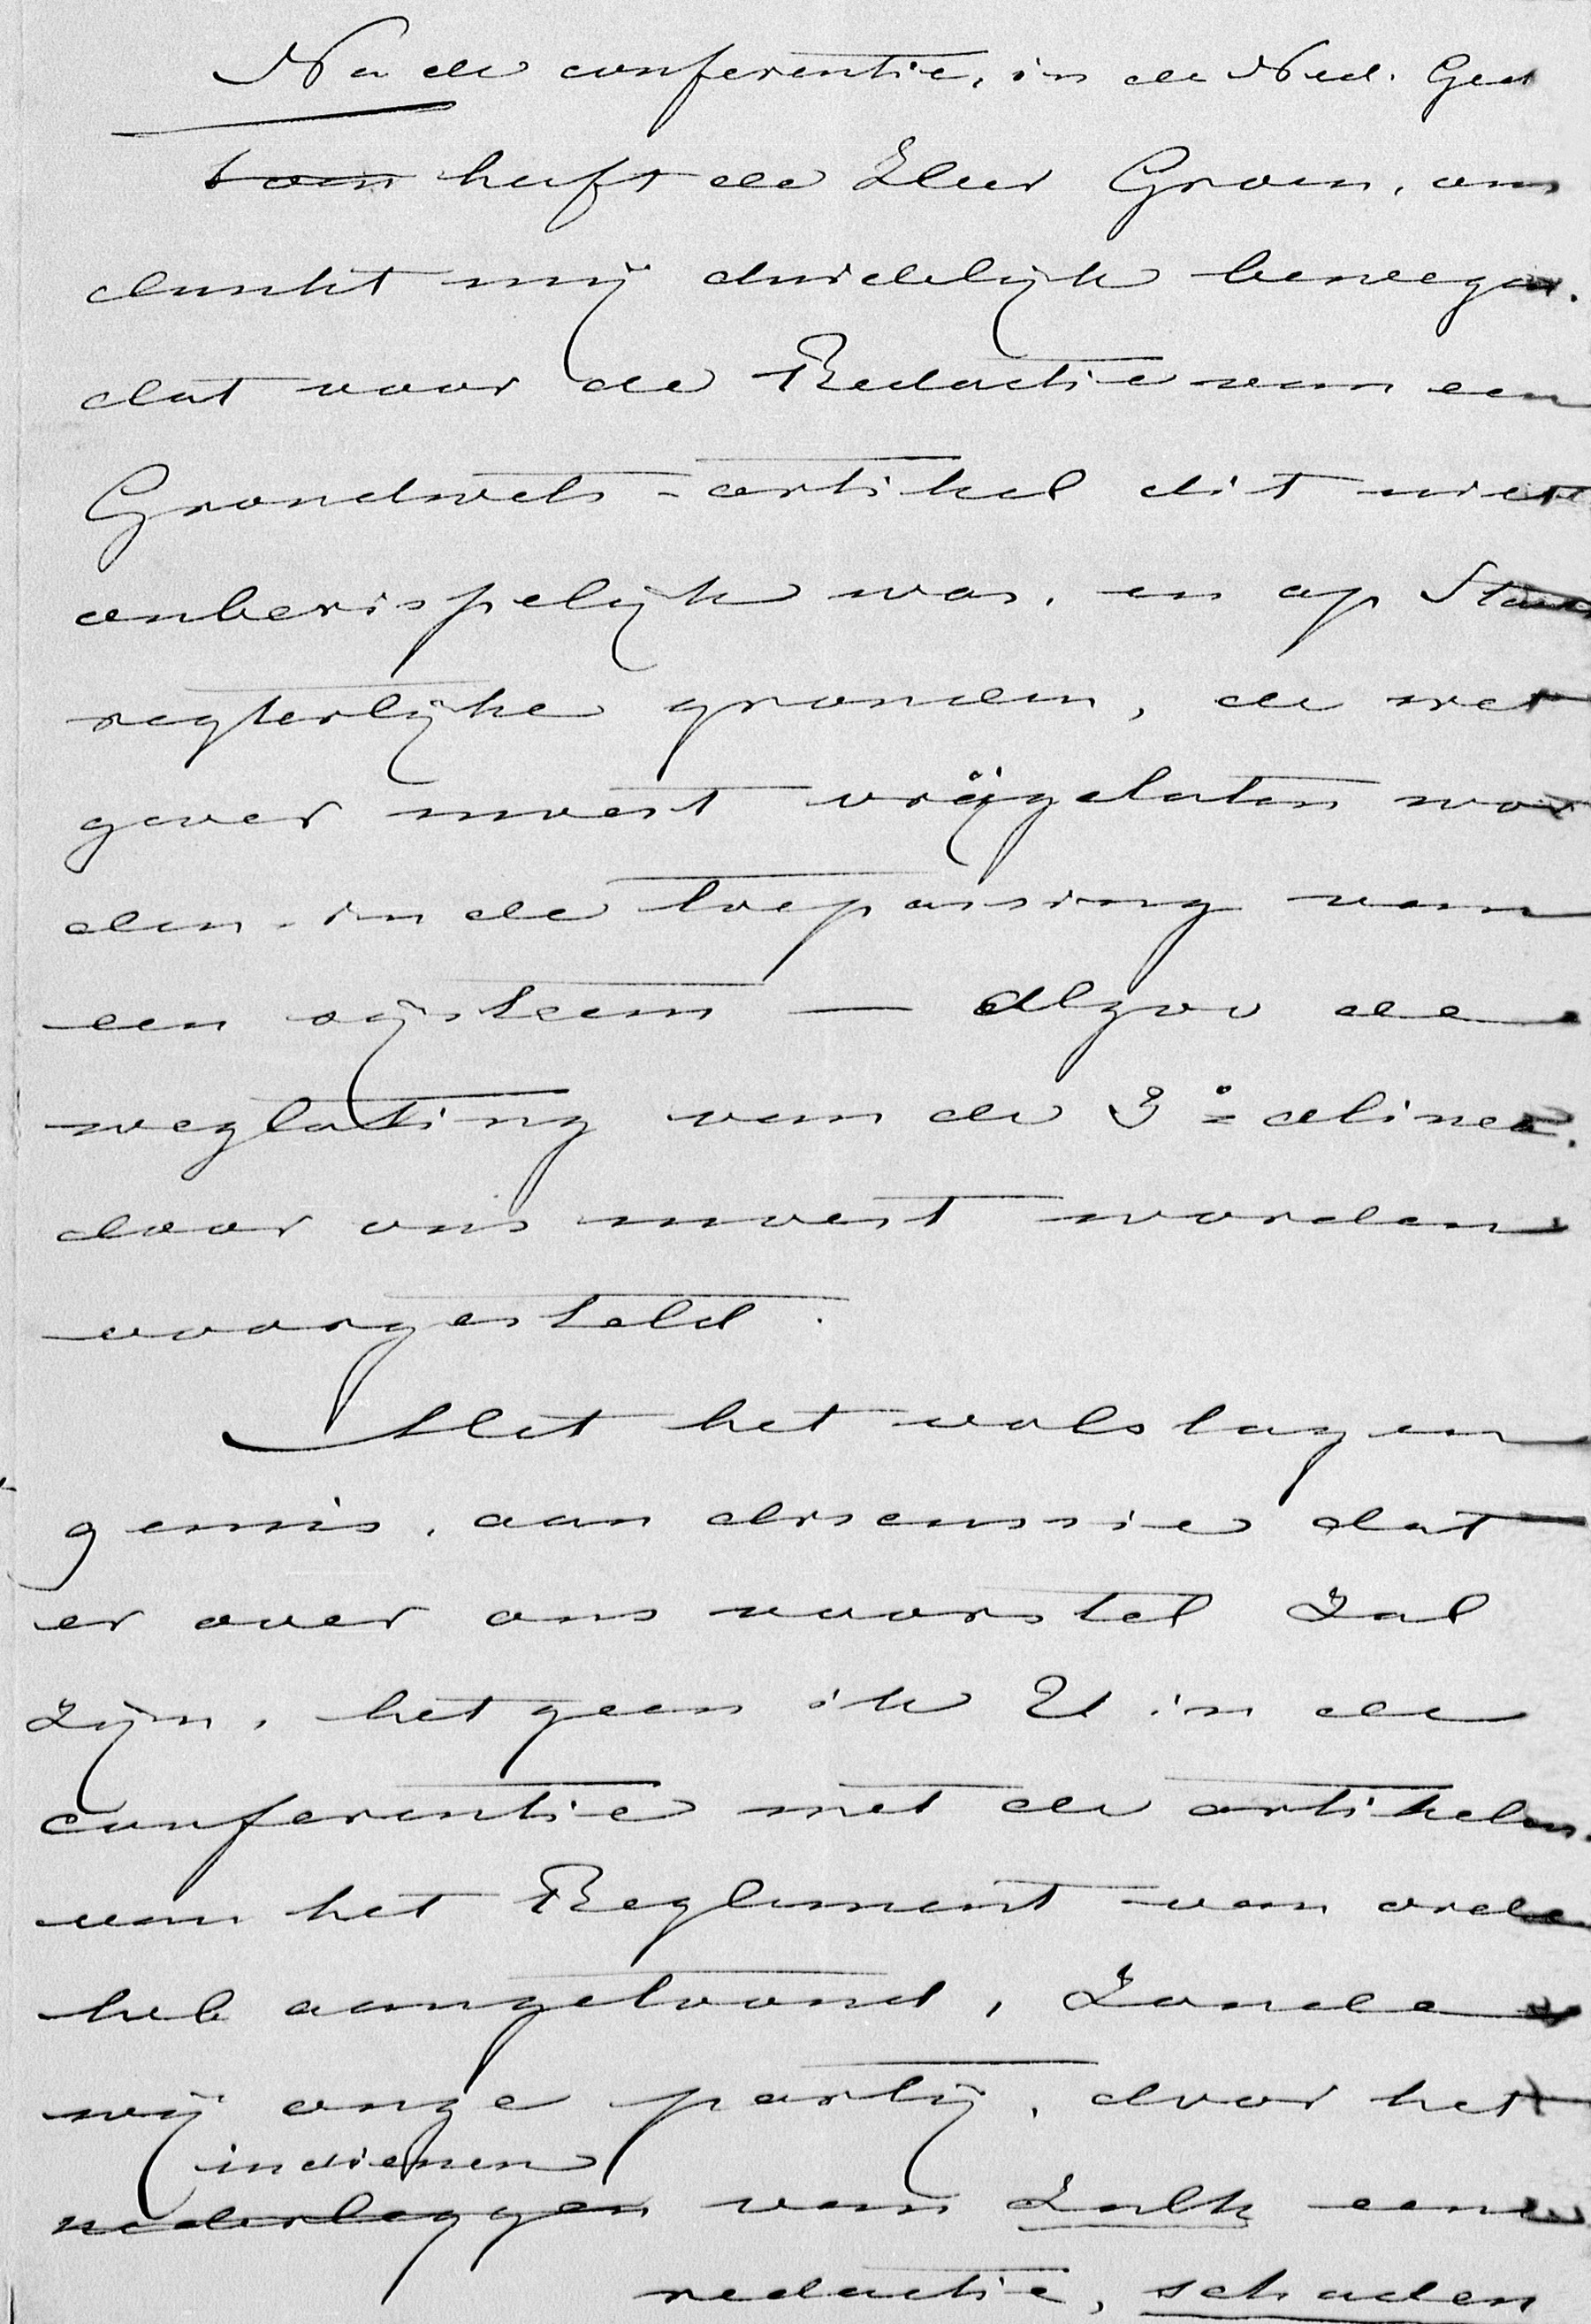 Na de conferentie, in de Ned. Ged
toen heeft de Heer Groen, ons
dunkt mij duidelijk bewezen.
dat voor de Redactie van een
Grondwets-artikel dit niet
onberispelijk was. en op Staats
regterlijke gronden, de wet
gever moest vrijgelaten wor
den. in de toepassing van
een systeem — alzoo de
weglating van de 3e alinea.
door ons moest worden
voorgesteld.
Met het volslagen
gemis, aan discussie dat
er over ons voorstel Zal
Zijn, hetgeen ik U in de
conferentie met de artikelen
van het Reglement van orde
heb aangetoond, Zouden
wij onze partij, door het
indienen
nederleggen van Zulk eene
redactie, schaden